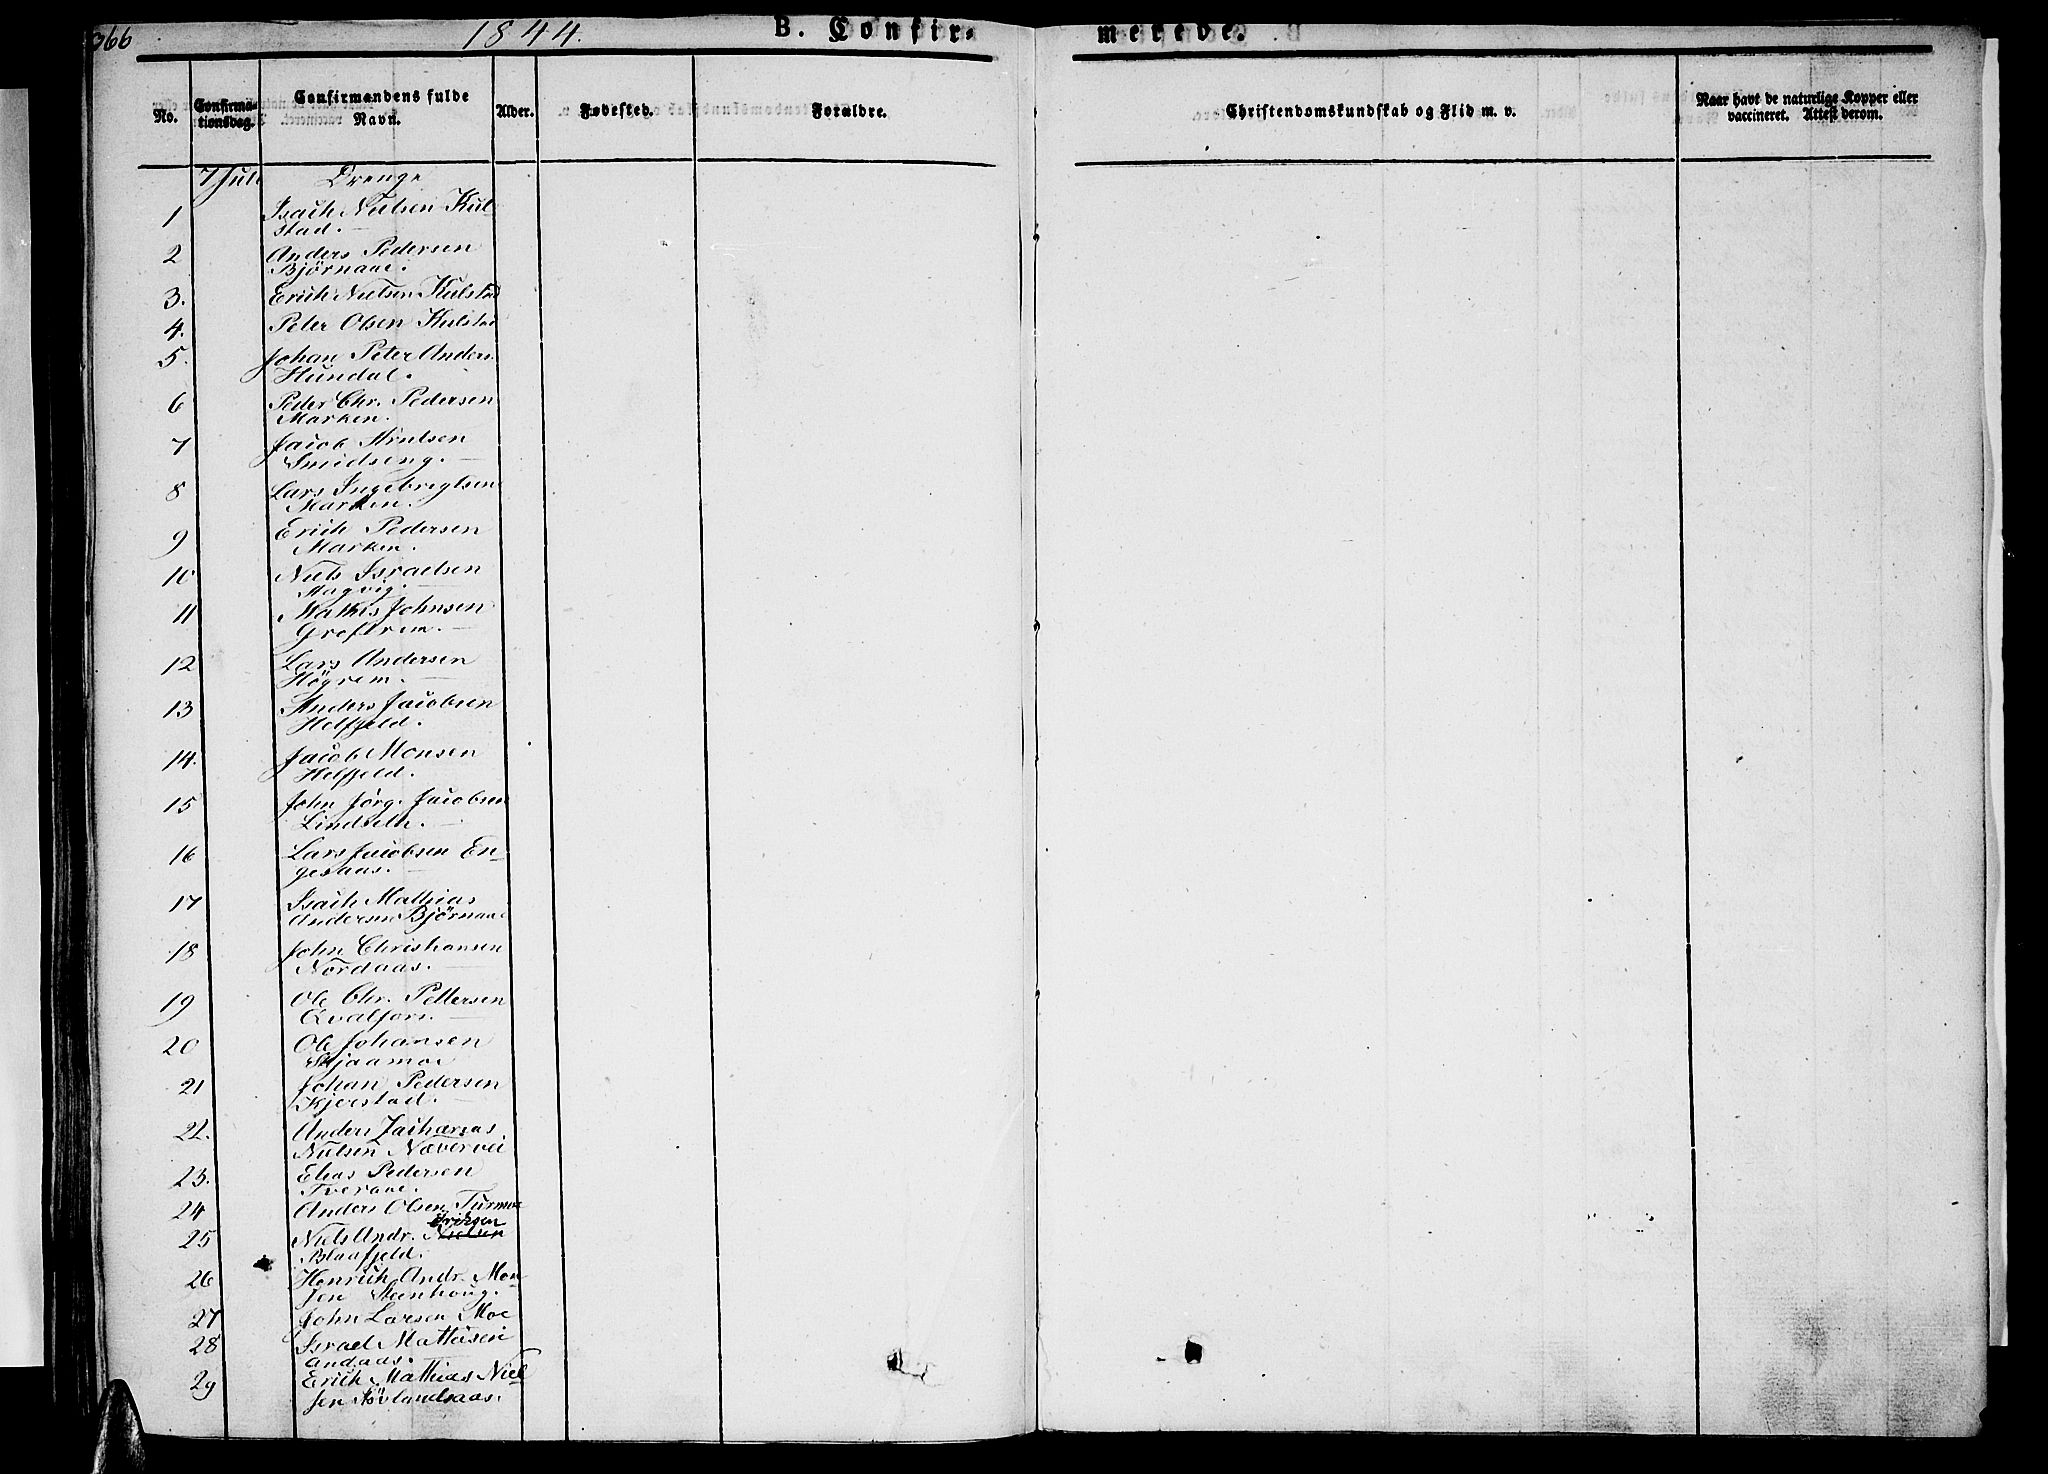 366
1844. B. Confirmerede.
No. Confirmationsdag. Confirmandens fulde Navn. Alder. Fødested. Forældre. Christendomskundskab og Flid m. v. Naar havt de naturlige Kopper eller vaccineret. Attest derom.
7 Juli Drenge
1 Isach Nielsen Kul-
stad.
2 Anders Pedersen
Bjørnaae.
3. Erich Nielsen Kulstad
4. Peter Olsen Kulstad
5. Johan Peter Anders.
Hundal.
6 Peder Chr. Pedersen
Marken.
7 Jacob
Smedseng.
8 Lars Ingebrigtsen
Marken.
9 Erich Pedersen
Marken.
10 Niels Israelsen
11 Mathis Johnsen
Groftrem.
12 Lars Andersen
Högrem.
13 Anders Jacobsen
Helfjeld.
14. Jacob Monsen
Helfjeld.
15 John Jörg. Jacobsen
Lindseth.
16 Lars Jacobsen En-
gesaas.
17 Isach Mathias
Andersen Björnaae
18 John Christiansen
Nordaas.
19 Ole Chr. Pettersen
Qvalfors.
20 Ole Johansen
Skjaamoe
21 Johan Pedersen
Kjerstad.
22. Anders Zacharias
Nielsen Nævervei
23. Elias Pedersen
Tveraae.
24 Anders Olsen Turmoe
25 Niels Andr. Nielsen Erichsen
Blaafjeld.
26 Henrich Andr. Mon-
sen Steenhoug.
27 John Larsen Moe
28 Israel Mathisen
andaas.
29 Erich Mathias Niel-
sen Sövlandsaas.